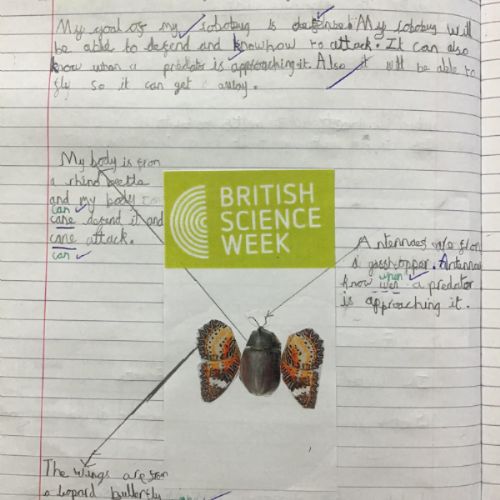 My goal of my robobug is defense! My robobug will
be able to defend and know how to attack. It can also
know when a predator is approaching it. Also it will be able to
fly so it can get away.
My body is from
a rhino beetle
and my body can
can
cane defend it and
cane attack.
can
BRITISH
SCIENCE
WEEK
Antennaes are from
a grasshopper. Antennaes
when
know wen a predator
is approaching it.
The wings are from
a lopard butterfly